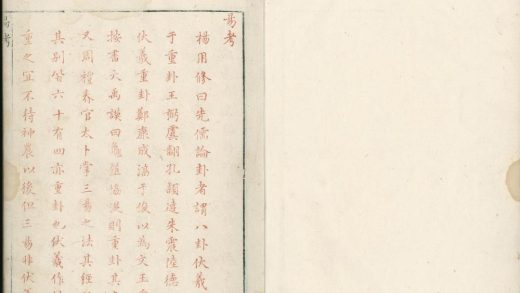 易考
楊用修曰先儒論卦者謂八卦伏羲
于重卦王弼虞翻孔穎達朱震陸德
伏羲重卦鄭康成淳于俊以為文王
按書大禹謨曰龜筮協從則重卦其
又周禮春官太卜掌三易之法其經
其別皆六十有四亦重卦也伏羲作
重之宜不待神農以後但三易非伏
易考